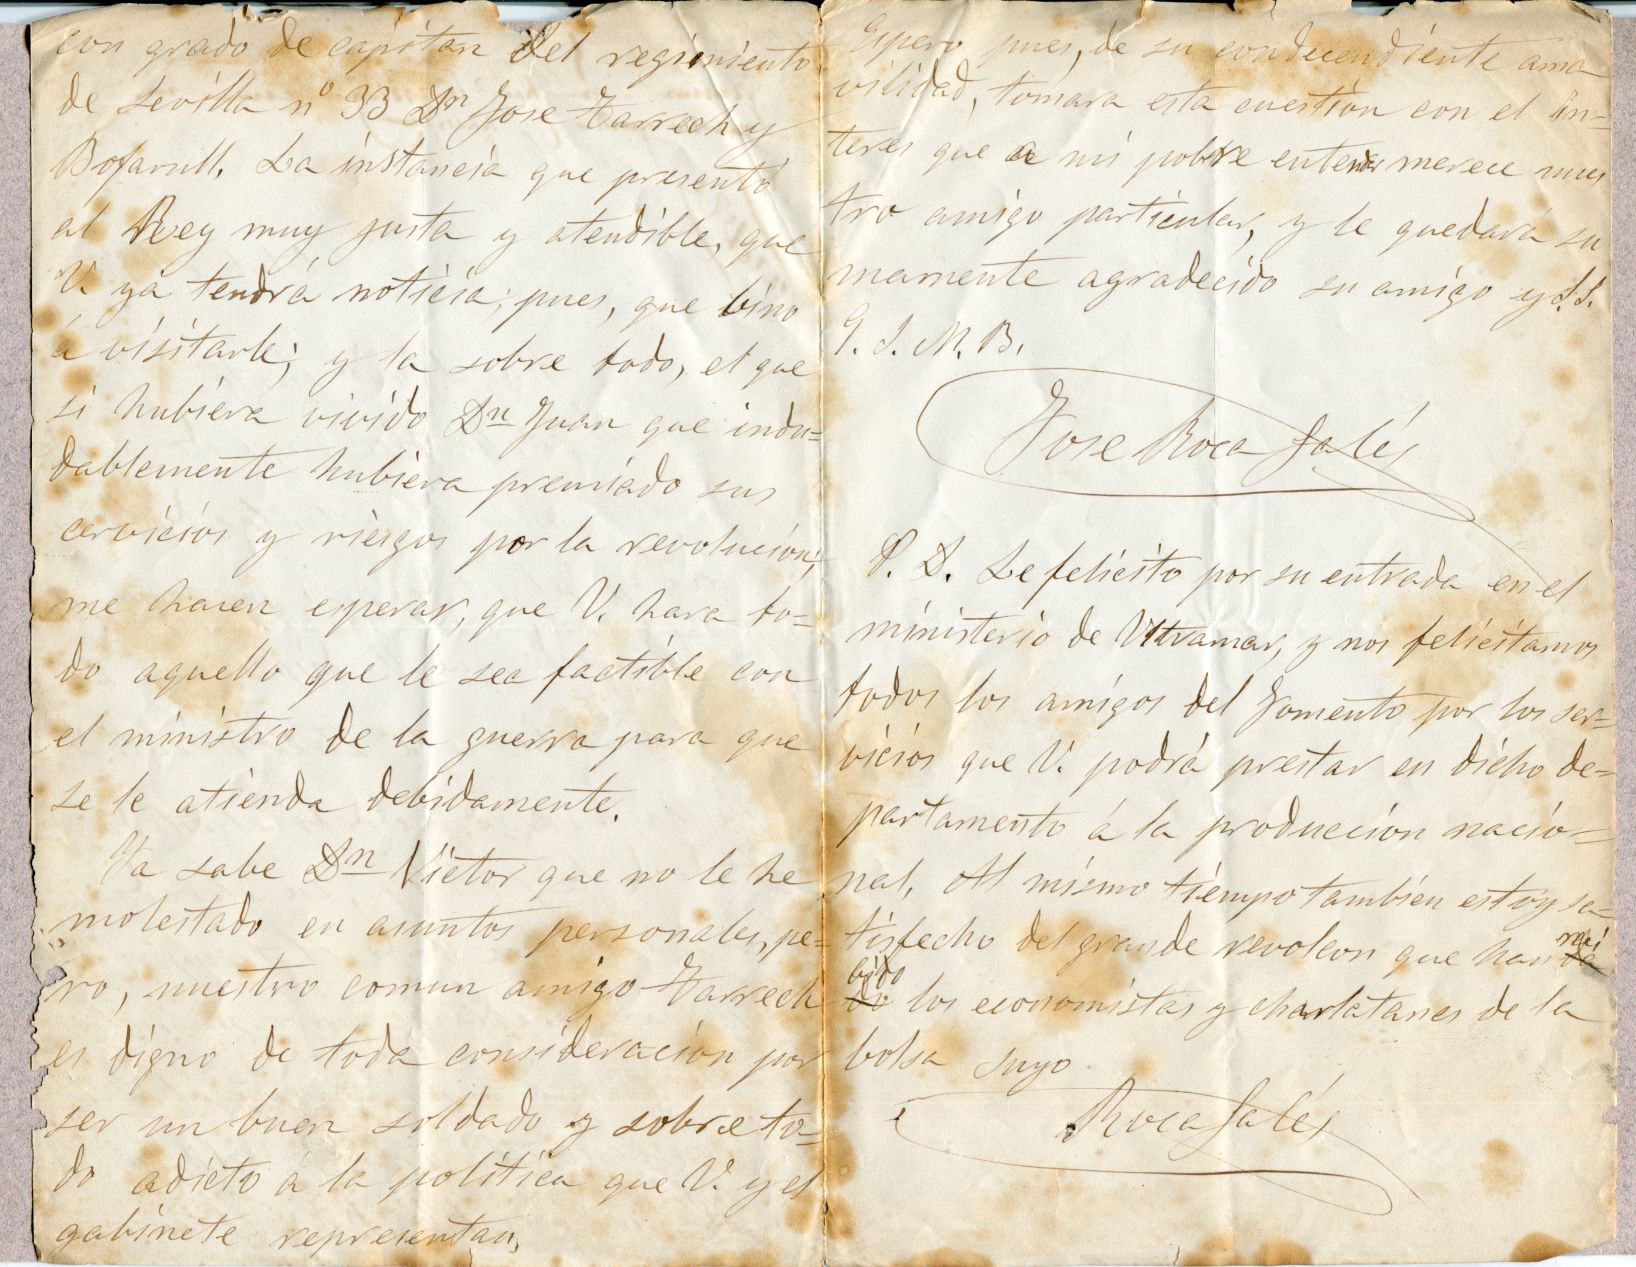 con grado de capitan del regimiento
de Sevilla nº 33 Dn Jose Tarrech y
Bofarull. La instancia que presentó
al Rey muy justa y atendible, que
V. ya tendrá noticia; pues, que bino
á visitarle; y la sobre todo, el que
si hubiera vivido Dn Juan que indu=
dablemente hubiera premiado sus
cervicios y riesgos por la revolucion;
me hacen esperar, que V. hara to=
do aquello que le sea factible con
el ministro de la guerra para que
se le atienda debidamente.
Ya sabe Dn Victor que no le he
molestado en asuntos personales, pe=
ro, nuestro comun amigo Tarrech
es digno de toda consideracion por
ser un buen soldado y sobre to=
do adicto á la politica que V. y el
gabinete representan.
Espero pues, de su condecendiente ama
vilidad, tomara esta cuestion con el in=
teres que a mi pobre entender merece nues
tro amigo particular, y le quedará su
mamente agradecido su amigo y S.S.
Q. S. M. B.
Jose Roca Galés
P. D. Le felicito por su entrada en el
ministerio de Ultramar, y nos felicitamos
todos los amigos del Fomento por los ser=
vicios que V. podrá prestar en dicho de=
partamento á la produccion nacio=
nal. Al mismo tiempo tambien estoy sa=
tisfecho del grande revolcon que han reci
bido los economistas y charlatanes de la
bolsa suyo
Roca Galés